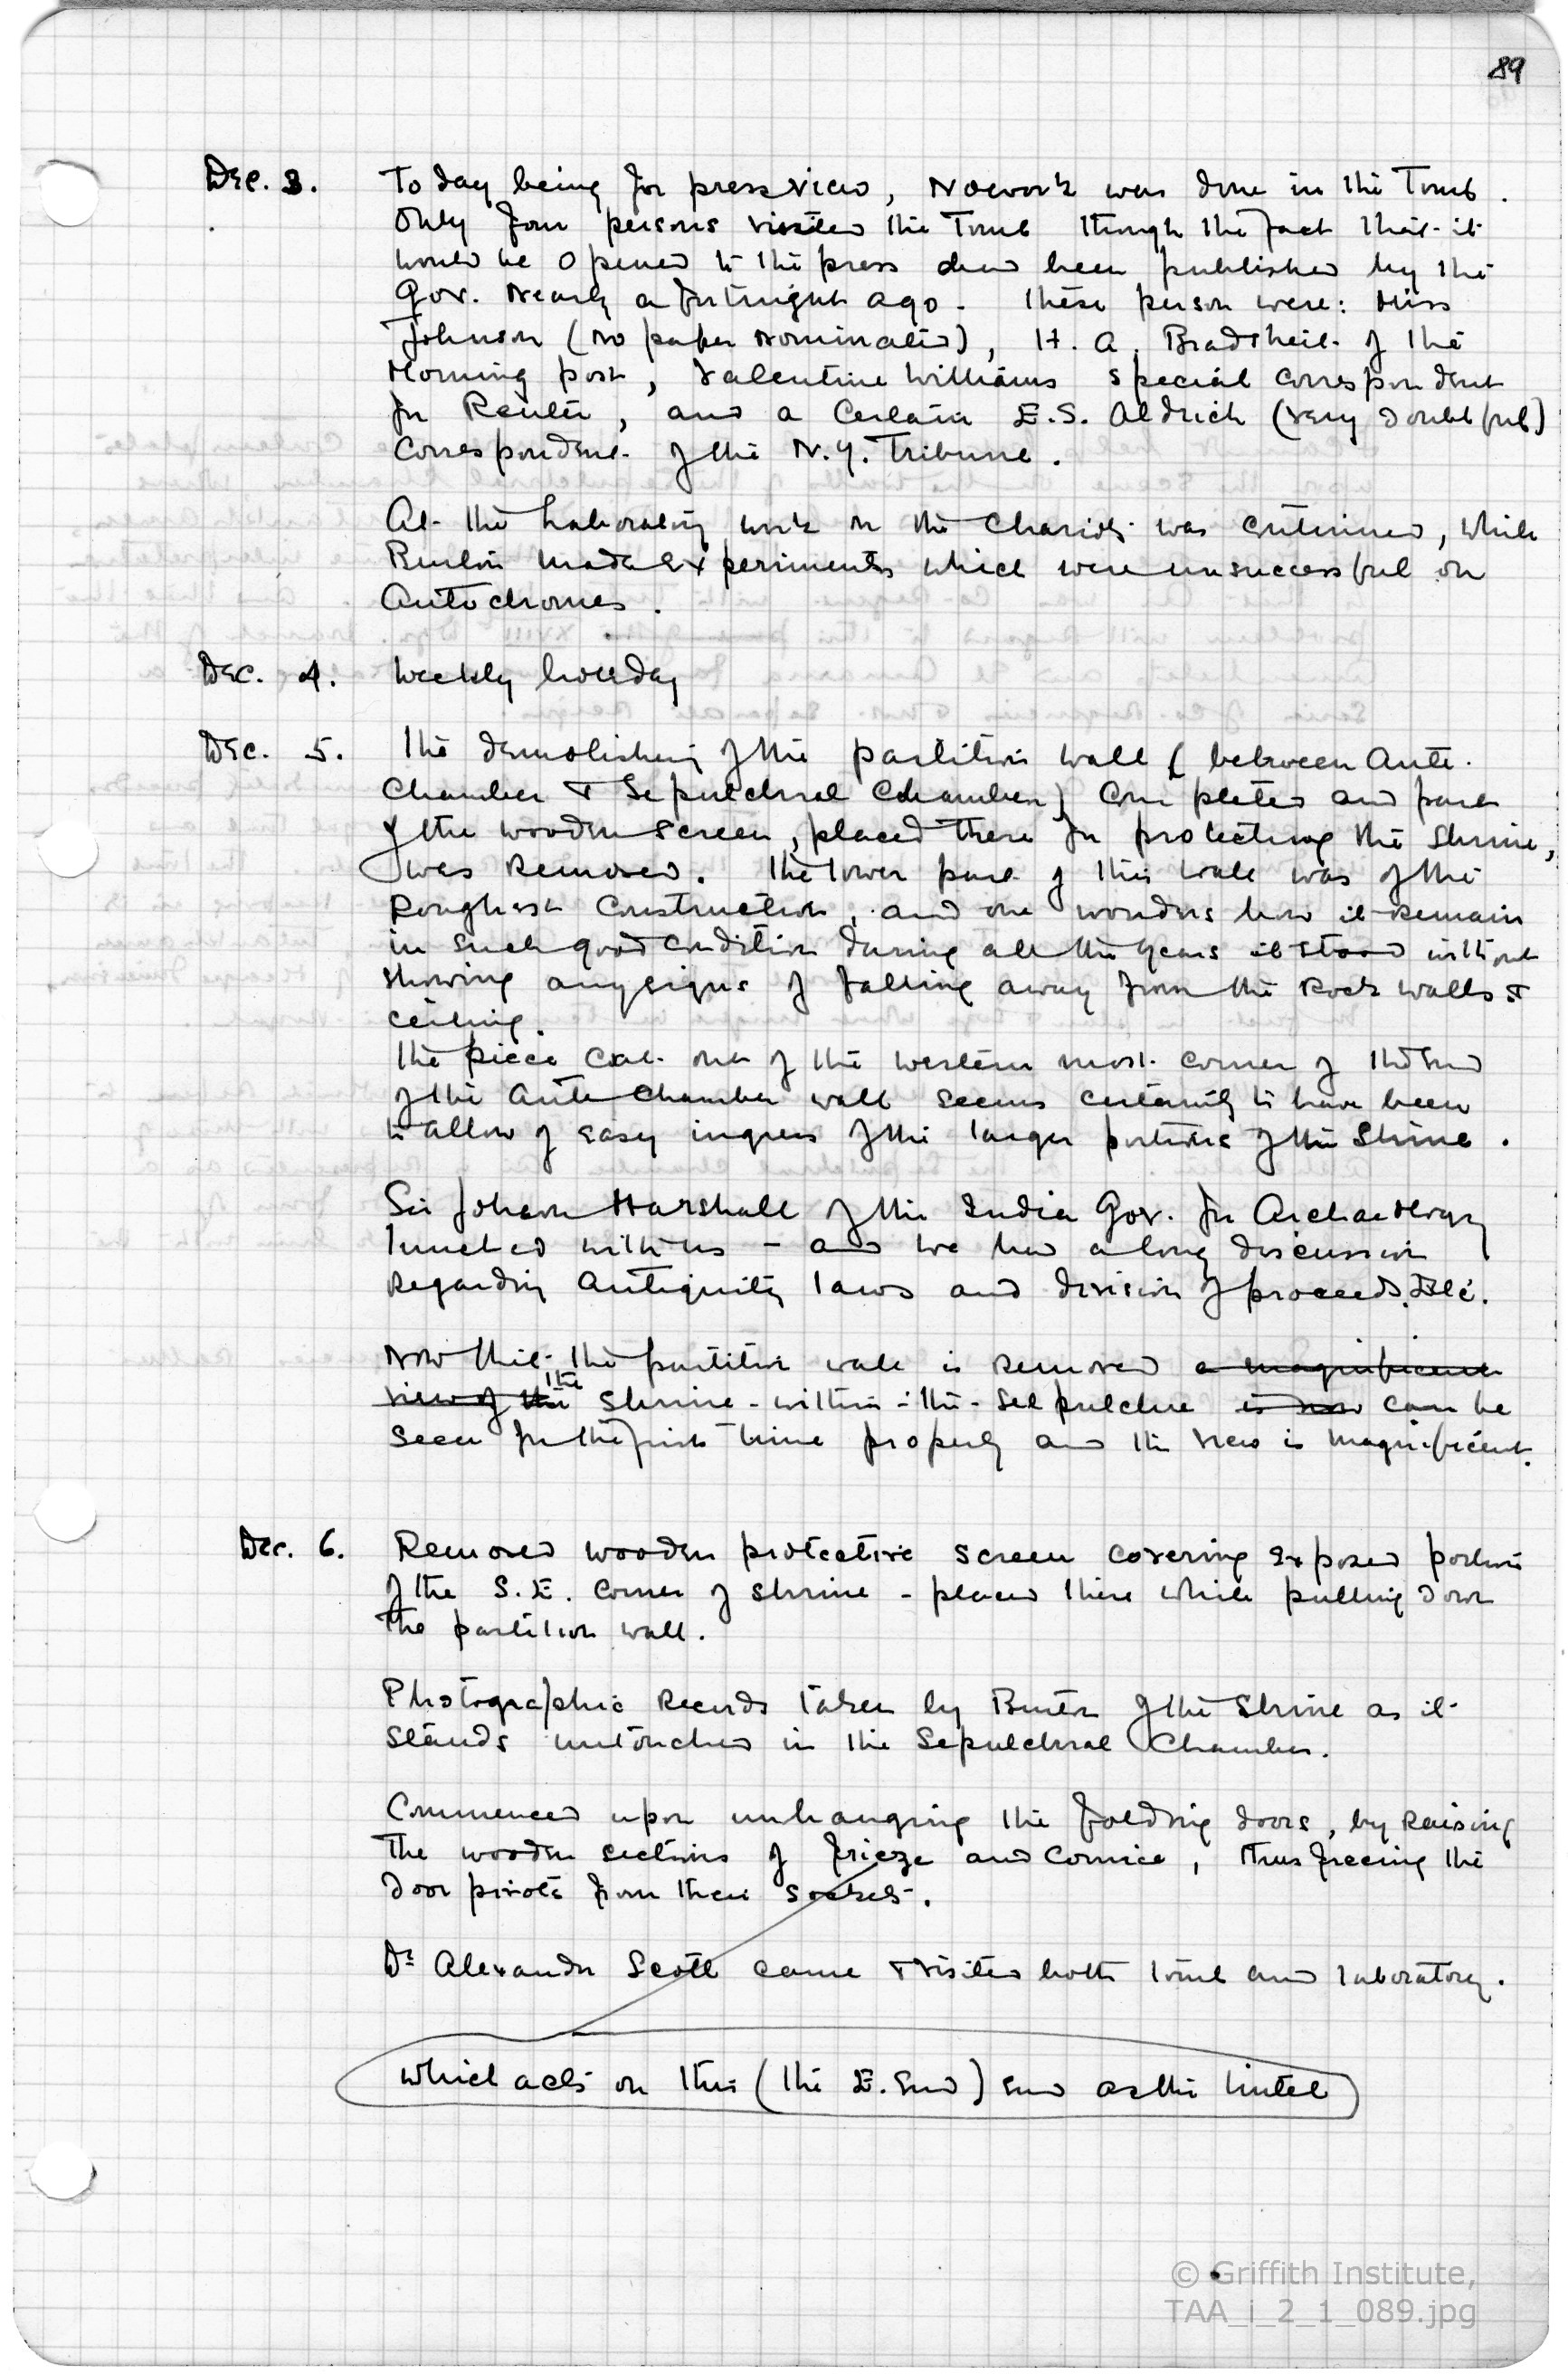 89
Dec. 3. To day being for press view, No work was done in the Tomb.
Only four persons visited the Tomb though the fact that it
would be opened to the press had been published by the
Gov. nearly a fortnight ago. These person were: Miss
Johnson (no paper nominated), H. A. Bradstreit of the
Morning post, Valentine Williams special correspondent
for Reuter, and a certain E.S. Aldrich (very doubtful)
correspondent of the N.Y. Tribune.
At the Laboratory work on the chariots was continued, while
Burton made experiments which were unsuccessful on
Autochromes.
Dec. 4. Weekly holiday
Dec. 5. The demolishing of the partition wall (between Ante-
chamber & Sepulchral Chamber) completed and part
of the wooden screen, placed there for protecting the shrine,
was removed. The lower part of this wall was of the
roughest construction, and one wonders how it remain
in such good condition during all the years it stood without
showing any signs of falling away from the rock walls &
ceiling.
The piece cut out of the western most corner of the end
of the Ante chamber wall seems certainly to have been
to allow of easy ingress of the larger portions of the Shrine.
Sir John Marshall of the India Gov. for Archaeology
lunched with us - and we had a long discussion
regarding antiquity laws and division of proceeds. Etc.
Now that the partition wall is removed a magnificent
view of the the shrine-within-the-selpulchre is now can be
seen for the first time properly and the view is magnificent.
Dec. 6. Removed wooden protective screen covering exposed portions
of the S.E. corner of shrine - placed there while pulling down
the partition wall.
Photographic records taken by Burton of the Shrine as it
stands untouched in the Sepulchral Chamber.
Commenced upon unhanging the folding doors, by raising
the wooden sections of frieze and cornice, thus freeing the
door pivots from their sockets.
Dr Alexander Scott came & visited both tomb and laboratory.
which acts on this (the E. End) end as the lintel
© Griffith Institute,
TAA_i_2_1_089.jpg